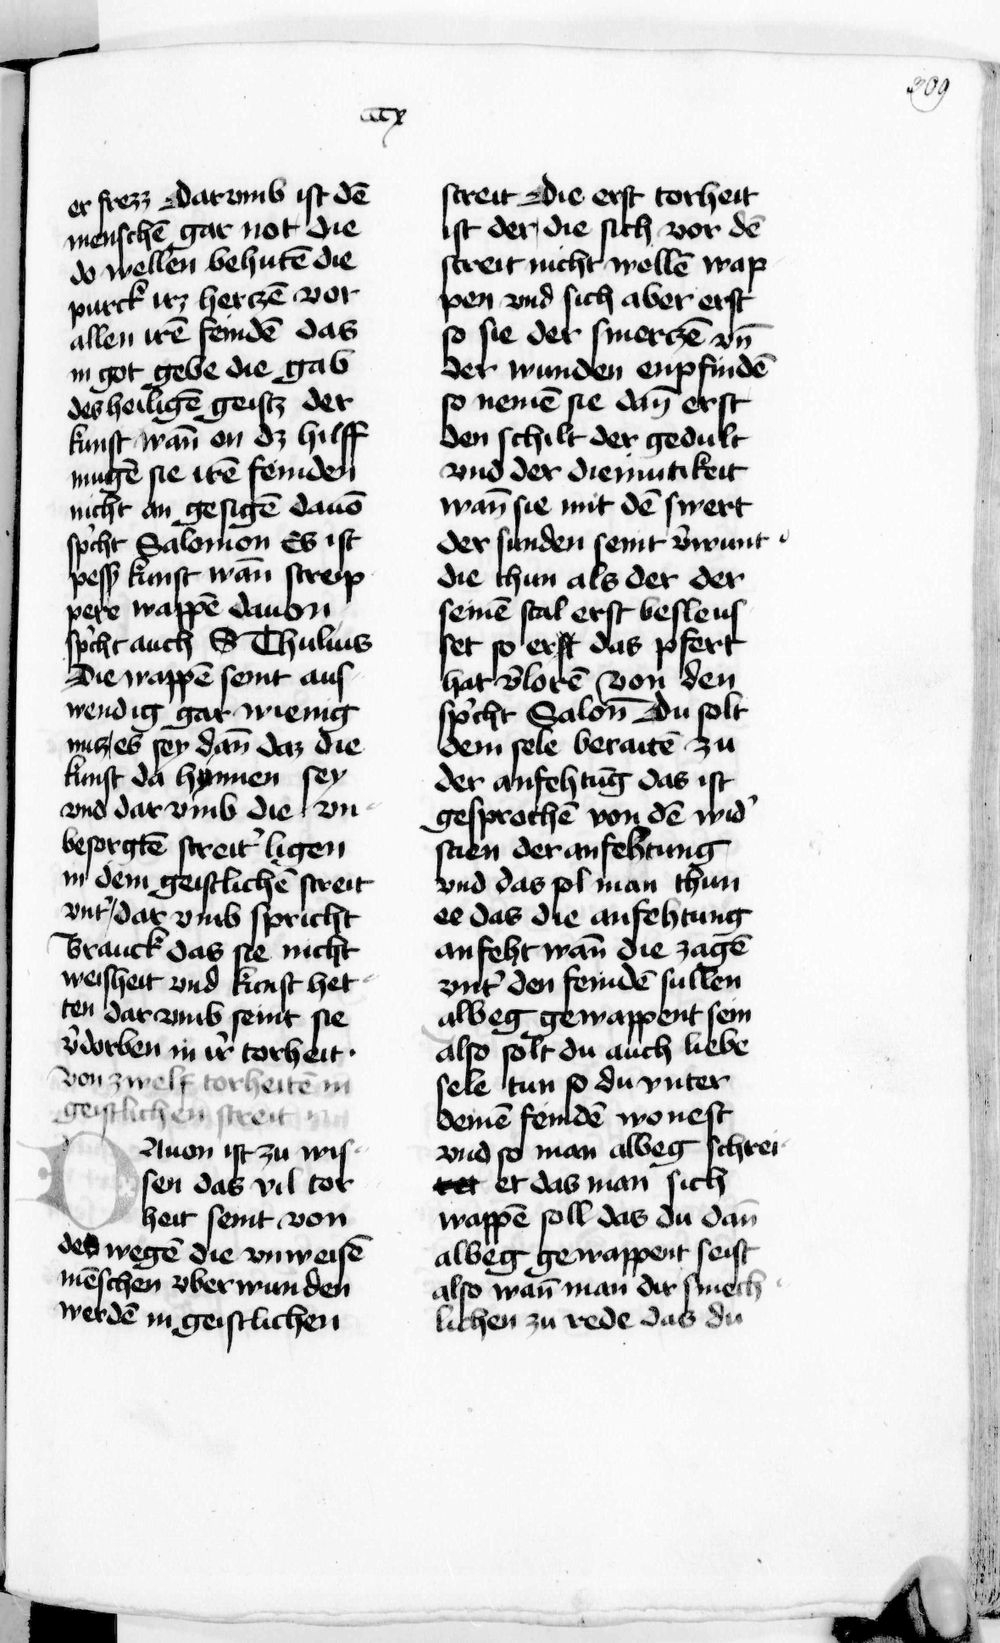 309
cccx
er frezz Darvmb ist dē
menschē gar not die
do wellen behutē die
purck irz herczē vor
allen irē feindē das
in got gebe die gab
des heiligē geistz der
kunst wań on dz hilff
mugē sie irē feinden
nicht an gesigē dauō
spͥcht Salomon Es ist
pessz kunst wań streyp
pere wappē dauon
spͥcht auch S Thulius
Die wappē seint aus
wendig gar wienig
nutz es sey dań daz die
kunst da hynnen sey
vnd dar vmb die vn
besorgtē streit᾽ ligen
in dem geistlichē streit
vnt᾽ dar vmb spricht
Brauck das sie nicht
weisheit vnd kunst het
ten dar vmb seint sie
v᾽dorben in ir᾽ torheit ·
Von zwelf torheitē in
geistlichen streit
DAuon ist zu wis
sen das vil tor
heit seint von
des wegē die vnweisē
mēschen vberwunden
werdē in geistlichen
streit Die erst torheit
ist der die sich vor dē
streit nicht wellē wap
pen vnd sich aber erst
so sie der smerczē vn̄
der wunden enpfindē
so nemē sie dań erst
den schilt der gedult
vnd der diemutikeit
wań sie mit dē swert
der sunden seint v᾽wunt
die thun als der der
seinē stal erst besleus
set so erst das pfert
hat v᾽lorē von den
spͥcht Salon̄ Du solt
dein sele beraitē zu
der anfehtūg das ist
gesprochē von dē wid᾽
stien der anfehtung
vnd das sol man thun
ee das die anfehtung
anfeht wań die zagē
vnt᾽ den feindē sullen
albeg gewappent sein
also solt du auch liebe
sele tun so du vnter
deinē feindē wonest
vnd so man albeg schrei
et das man sich
wappē soll das du dań
albeg gewappent seist
also wań man dir smech
lichen zu rede das du